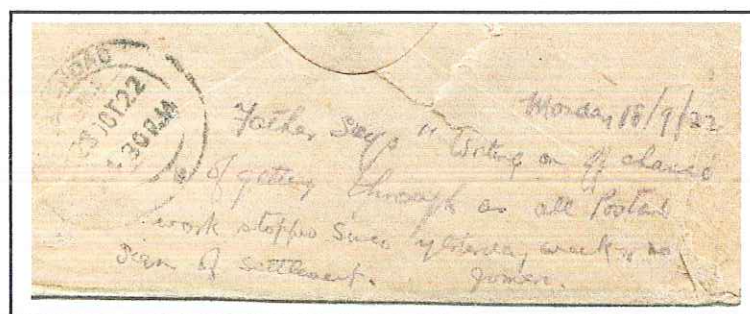 28 OCT 22
Monday 18/9/22
Father says " Writing on off chance
of getting through as all Postal
work stopped since yesterday week & no
sign of settlement.